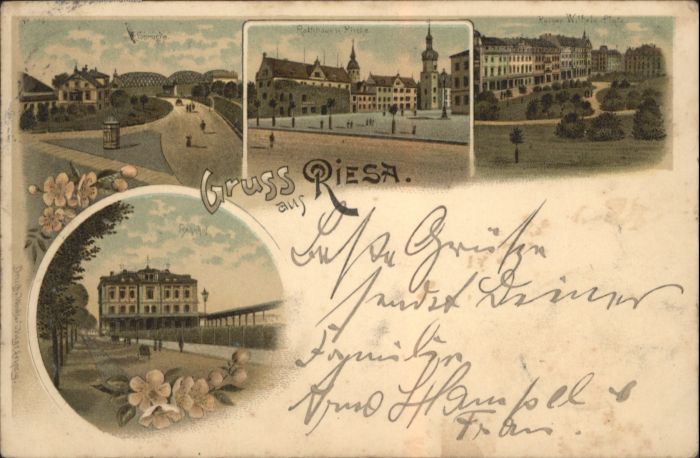 Rathhaus u. Kirche
Kaiser Wilhelm Platz
Gruss
aus RIESA.
Bahnhof
Beste Grüße
sendet Deiner
Familie
Arno Hampel u
Frau.